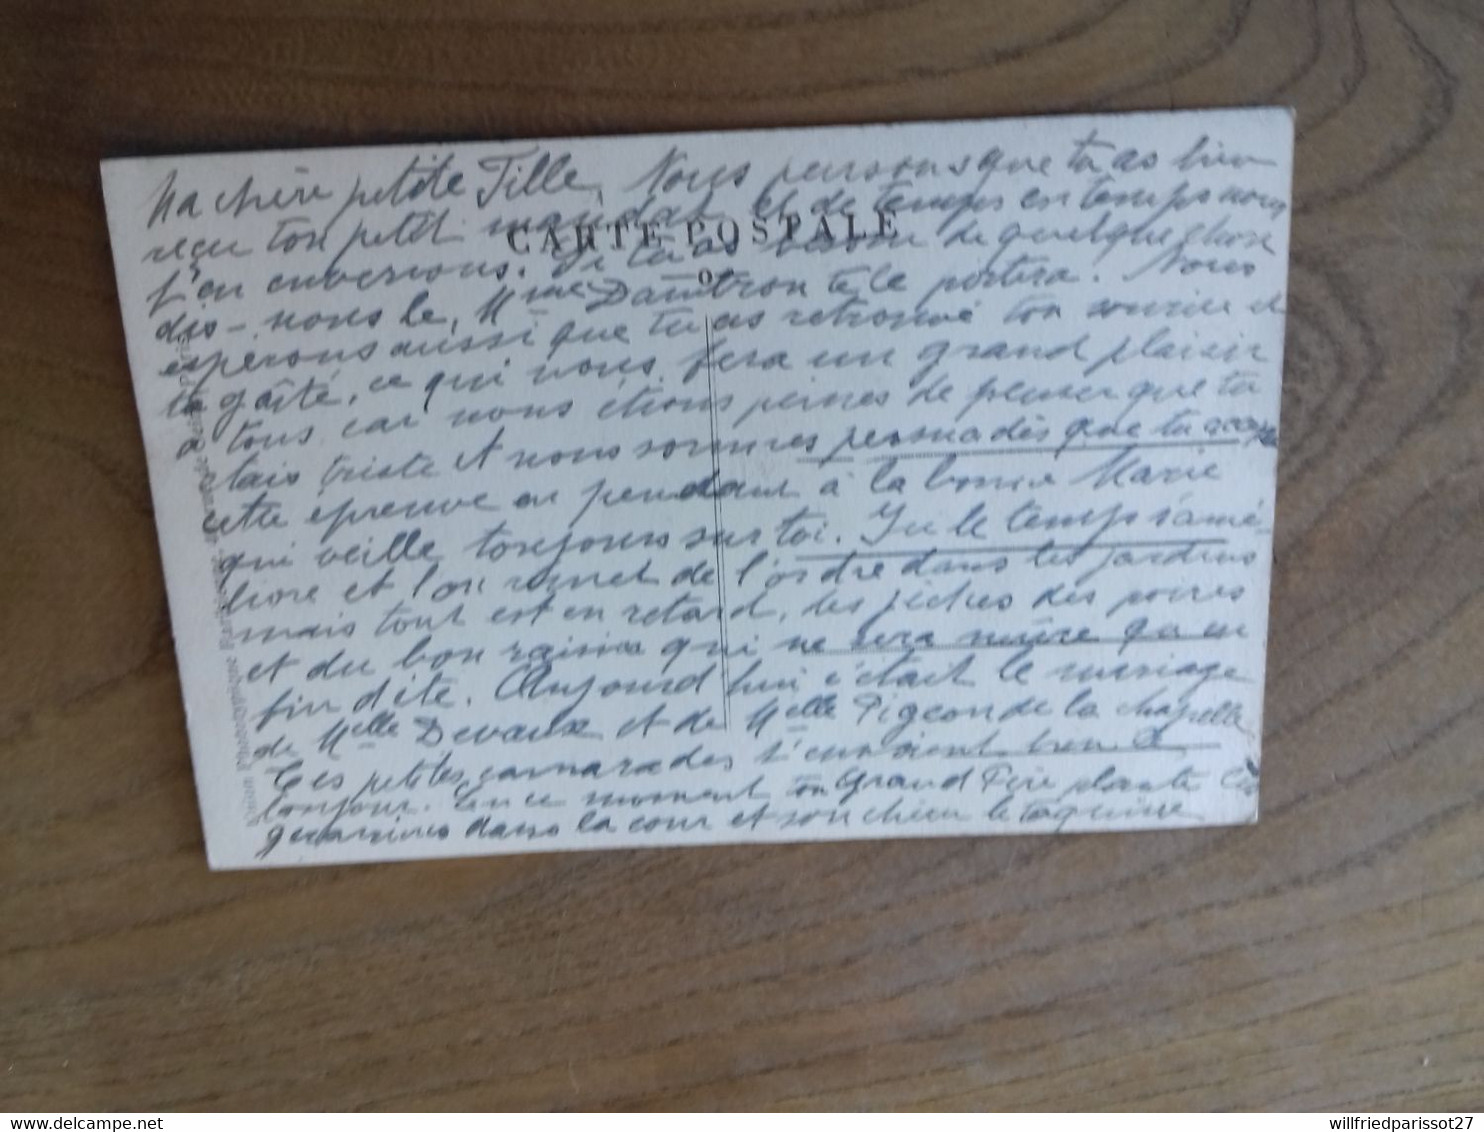 Ma chère petite Fille, Nous pensons que tu as bien
reçu ton petit mandat et de temps en temps nous
t'en enverrons. Si tu as besoin de quelque chose
dis-nous le, Mme Damtron te le portera. Nous
espérons aussi que tu as retrouvé ton sourire et
ta gaîté, ce qui nous fera un grand plaisir
à tous car nous étions peinés de penser que tu
étais triste et nous sommes persuadés que tu
cette épreuve en pensant à la bonne Marie
qui veille toujours sur toi. Ici le temps s'amé-
liore et l'on remet de l'ordre dans les jardins
mais tout est en retard, les pêches des poires
et du bon raisin qui ne sera mûre qu'en
fin d'été. Aujourd'hui c'était le mariage
de Melle Devaux et de Melle Pigeon de la chapelle
Tes petites camarades t'envoient bien le
bonjour. En ce moment ton Grand Père plante
dans la cour et son chien le taquine
CARTE POSTALE
delcampe.net
willfriedparissot27